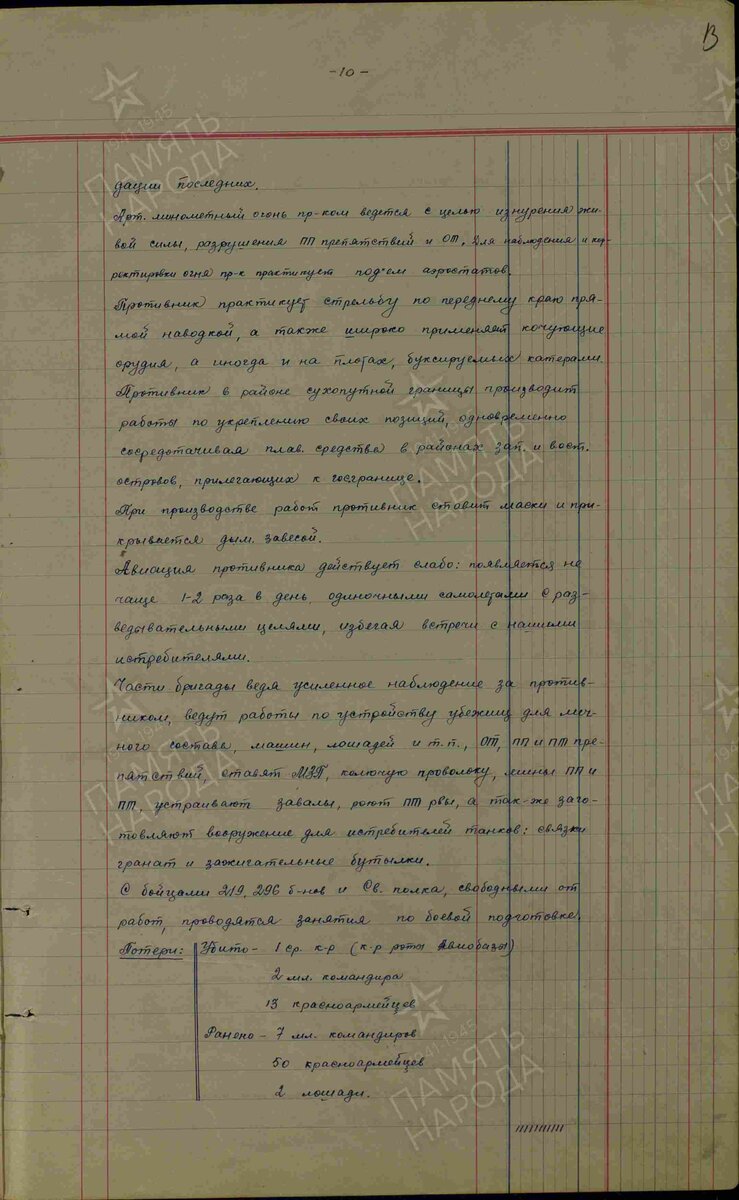 13
-10-
дации последних.
Арт. минометный огонь пр-ком ведется с целью изнурения жи-
вой силы, разрушения ПП препятствий и ОТ. Для наблюдения и кор-
ректировки огня пр-к практикует под'ем аэростатов.
Противник практикует стрельбу по переднему краю пря-
мой наводкой, а также широко применяет кочующие
орудия, а иногда и на плотах, буксируемых катерами.
Противник в районе сухопутной границы производит
работы по укреплению своих позиций, одновременно
сосредотачивая плав. средства в районах зап. и вост.
островов, прилегающих к госгранице.
При производстве работ противник ставит маски и при-
крывается дым. завесой.
Авиация противника действует слабо: появляется не
чаще 1-2 раза в день, одиночными самолетами с раз-
ведывательными целями, избегая встречи с нашими
истребителями.
Части бригады ведя усиленное наблюдение за против-
ником, ведут работы по устройству убежищ для лич-
ного состава, машин, лошадей и т.п., ОТ, ПП и ПТ пре-
пятствий, ставят МЗП, колючую проволоку, мины ПП и
ПТ, устраивают завалы, роют ПТ рвы, а так-же заго-
товляют вооружение для истребителей танков: связки
гранат и зажигательные бутылки.
С бойцами 219, 296 б-нов и Св. полка, свободными от
работ, проводятся занятия по боевой подготовке.
Потери: Убито - 1 ср. к-р (к-р роты Авиобазы)
2 мл. командира
13 красноармейцев
Ранено - 7 мл. командиров
50 красноармейцев
2 лошади.
ПАМЯТЬ НАРОДА
1941 1945